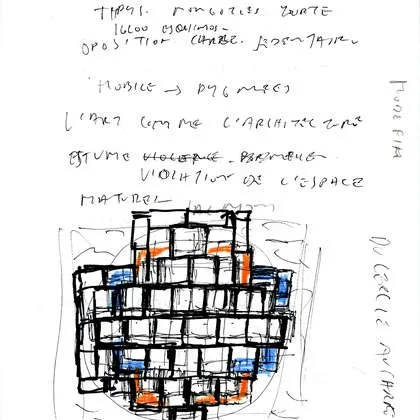 TIPYS. MONGOLES YOURTE
16600 ESQUIMOS.
OPOSITION CHASSE. SEDENTAIRE.
MOBILE → PYGMEES
L'ART COMME L'ARCHITECTURE
EST UNE VIOLENCE
VIOLATION DE L'ESPACE
NATUREL
DU CERCLE AU CARRE